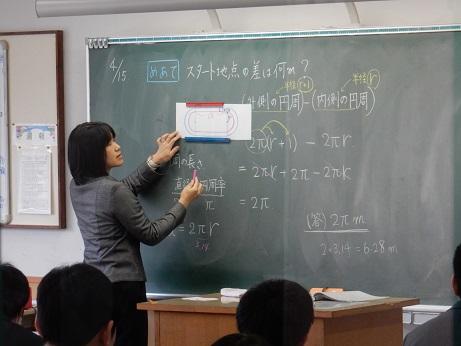 4/15
めあて スタート地点の差は何m?
半径(r+1) 半径(r)
(外側の円周)-(内側の円周)
2π(r+1) - 2πr
周の長さ
= 2πr + 2π - 2πr
直径 円周率
π
= 2π
= 2πr
3.14
(答) 2πm
2×3.14=6.28m